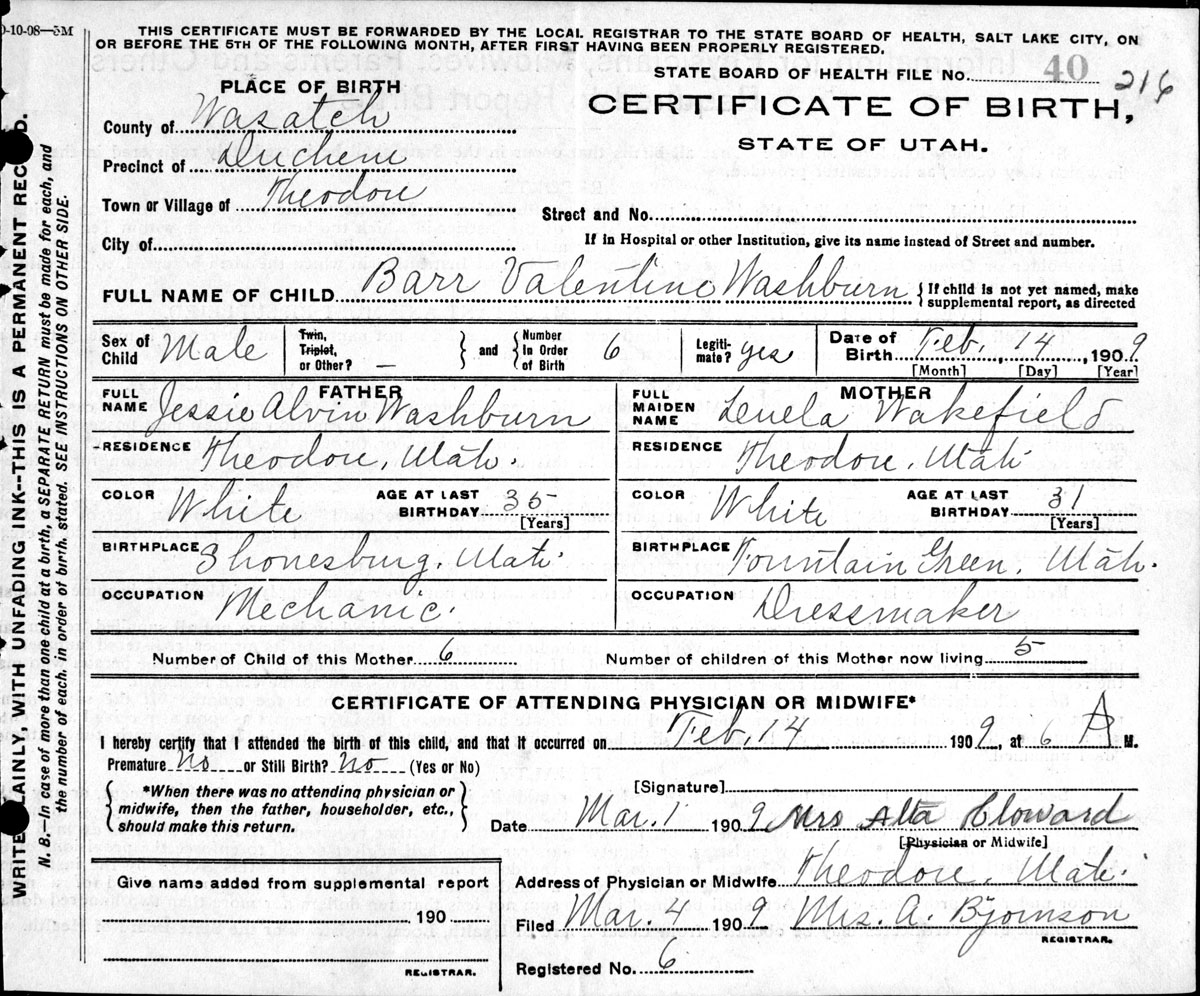 0-10-08—5M
THIS CERTIFICATE MUST BE FORWARDED BY THE LOCAL REGISTRAR TO THE STATE BOARD OF HEALTH, SALT LAKE CITY, ON
OR BEFORE THE 5TH OF THE FOLLOWING MONTH, AFTER FIRST HAVING BEEN PROPERLY REGISTERED.
STATE BOARD OF HEALTH FILE No. 40 216
CERTIFICATE OF BIRTH,
STATE OF UTAH.
PLACE OF BIRTH
County of Wasatch
Precinct of Duchene
Town or Village of Theodore
Street and No.
City of
If in Hospital or other Institution, give its name instead of Street and number.
FULL NAME OF CHILD Barr Valentine Washburn { If child is not yet named, make
supplemental report, as directed
Sex of Child Male
Twin, Triplet, or Other? — } and { Number In Order of Birth 6
Legiti-mate? yes
Date of Birth Feb. 14, 1909
[Month] [Day] [Year]
FATHER
FULL NAME Jessie Alvin Washburn
RESIDENCE Theodore, Utah.
COLOR White AGE AT LAST BIRTHDAY 35 [Years]
BIRTHPLACE Shonesburg, Utah.
OCCUPATION Mechanic.
MOTHER
FULL MAIDEN NAME Lenela Wakefield
RESIDENCE Theodore, Utah
COLOR White AGE AT LAST BIRTHDAY 31 [Years]
BIRTHPLACE Fountain Green, Utah.
OCCUPATION Dressmaker
Number of Child of this Mother 6 Number of children of this Mother now living 5
CERTIFICATE OF ATTENDING PHYSICIAN OR MIDWIFE*
I hereby certify that I attended the birth of this child, and that it occurred on Feb. 14 1909, at 6 A M.
Premature No or Still Birth? No (Yes or No)
{ *When there was no attending physician or
midwife, then the father, householder, etc.,
should make this return. }
[Signature]
Date Mar. 1 1909 Mrs Alta Cloward
[Physician or Midwife]
Address of Physician or Midwife Theodore, Utah.
Filed Mar. 4 1909 Mrs. A. Bjornson
REGISTRAR.
Registered No. 6
Give name added from supplemental report
190
REGISTRAR.
WRITE PLAINLY, WITH UNFADING INK--THIS IS A PERMANENT RECORD.
N. B.—In case of more than one child at a birth, a SEPARATE RETURN must be made for each, and
the number of each, in order of birth, stated. SEE INSTRUCTIONS ON OTHER SIDE.